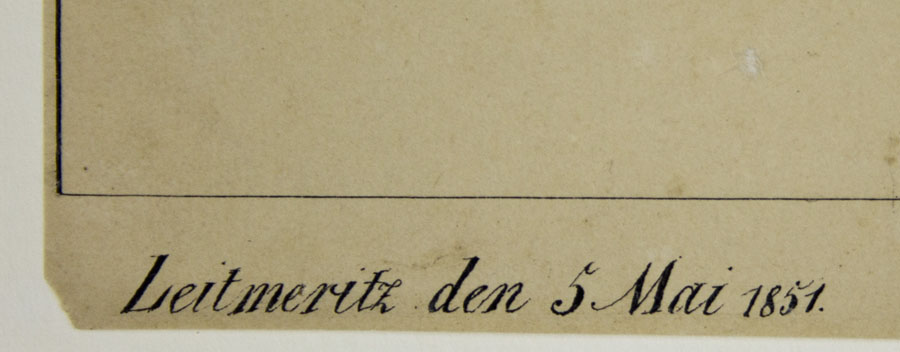 Leitmeritz den 5 Mai 1851.